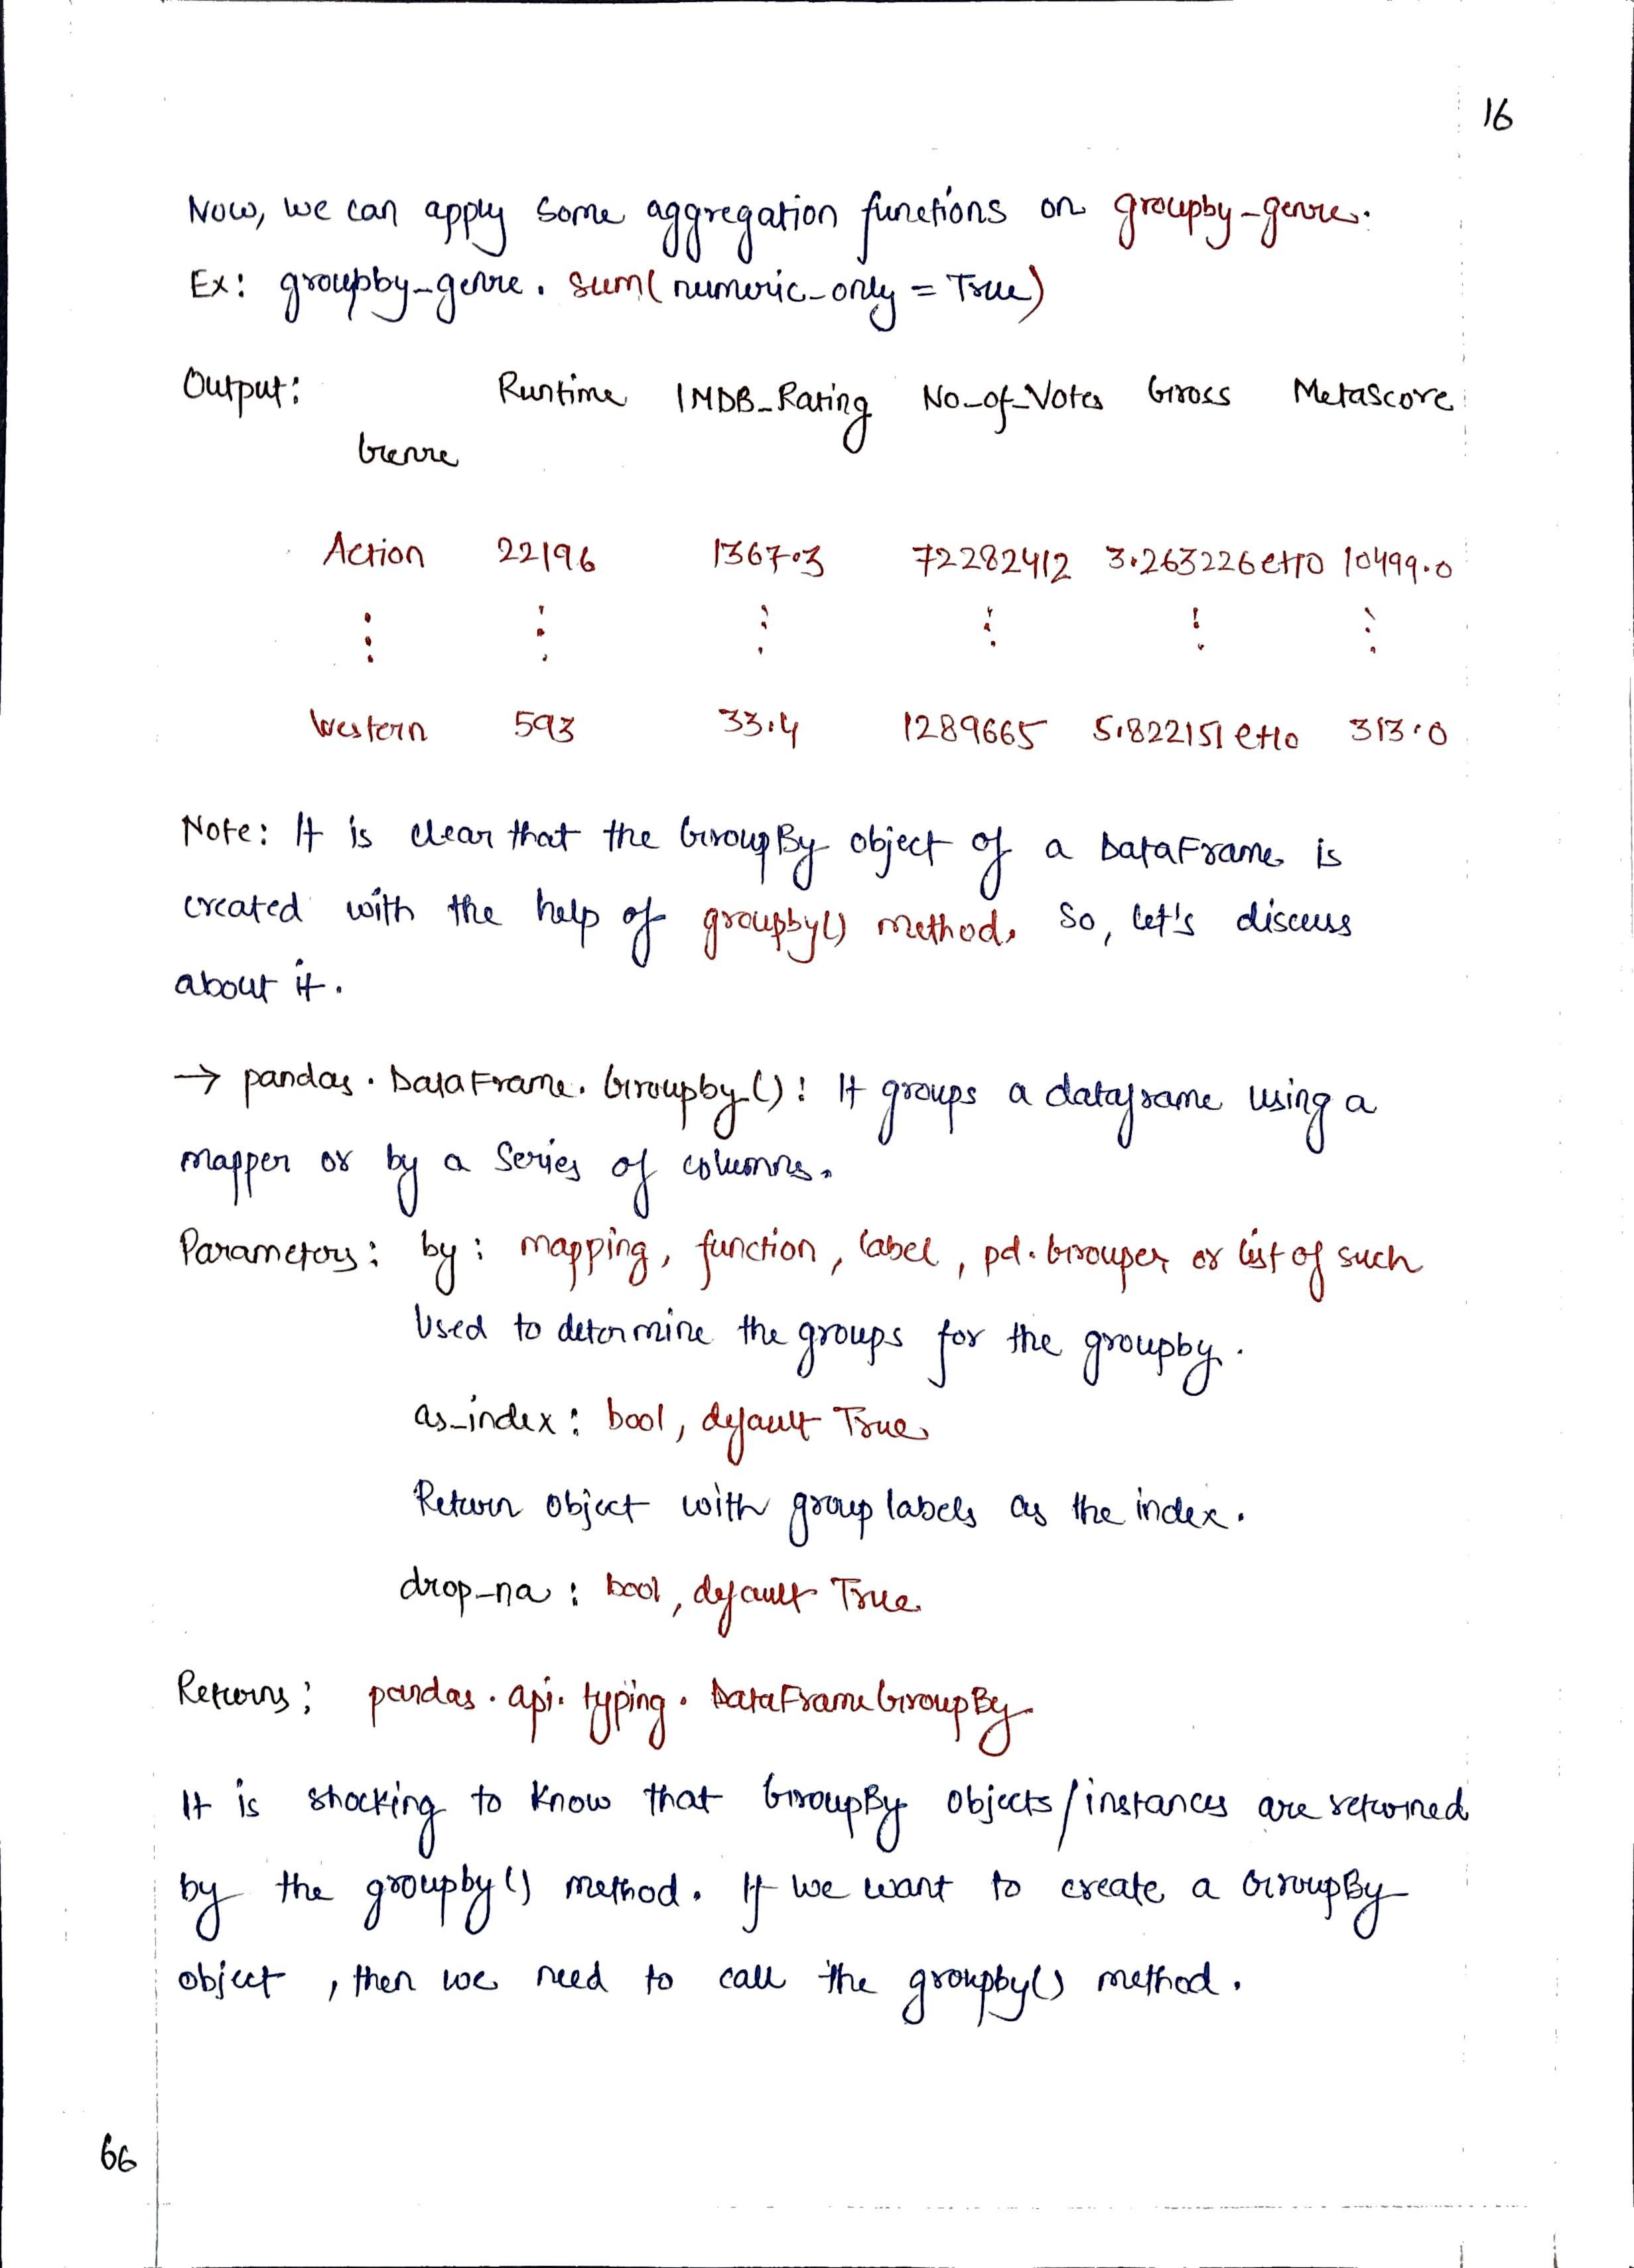 16
Now, we can apply some aggregation functions on groupby_genre.
Ex: groupby_genre.sum(numeric_only = True)
Output: Runtime IMDB_Rating No_of_Votes Gross Metascore
Genre
Action 22196 1367.3 72282412 3.263226e+10 10499.0
⋮ ⋮ ⋮ ⋮ ⋮ ⋮
Western 593 33.4 1289665 5.822151e+10 313.0
Note: It is clear that the GroupBy object of a DataFrame is
created with the help of groupby() method. So, let's discuss
about it.
→ pandas.DataFrame.Groupby(): It groups a dataframe using a
mapper or by a Series of columns.
Parameters: by: mapping, function, label, pd.Grouper or list of such
Used to determine the groups for the groupby.
as_index: bool, default True
Return object with group labels as the index.
drop_na: bool, default True
Returns: pandas.api.typing.DataFrameGroupBy
It is shocking to know that GroupBy objects/instances are returned
by the groupby() method. If we want to create a GroupBy
object, then we need to call the groupby() method.
66